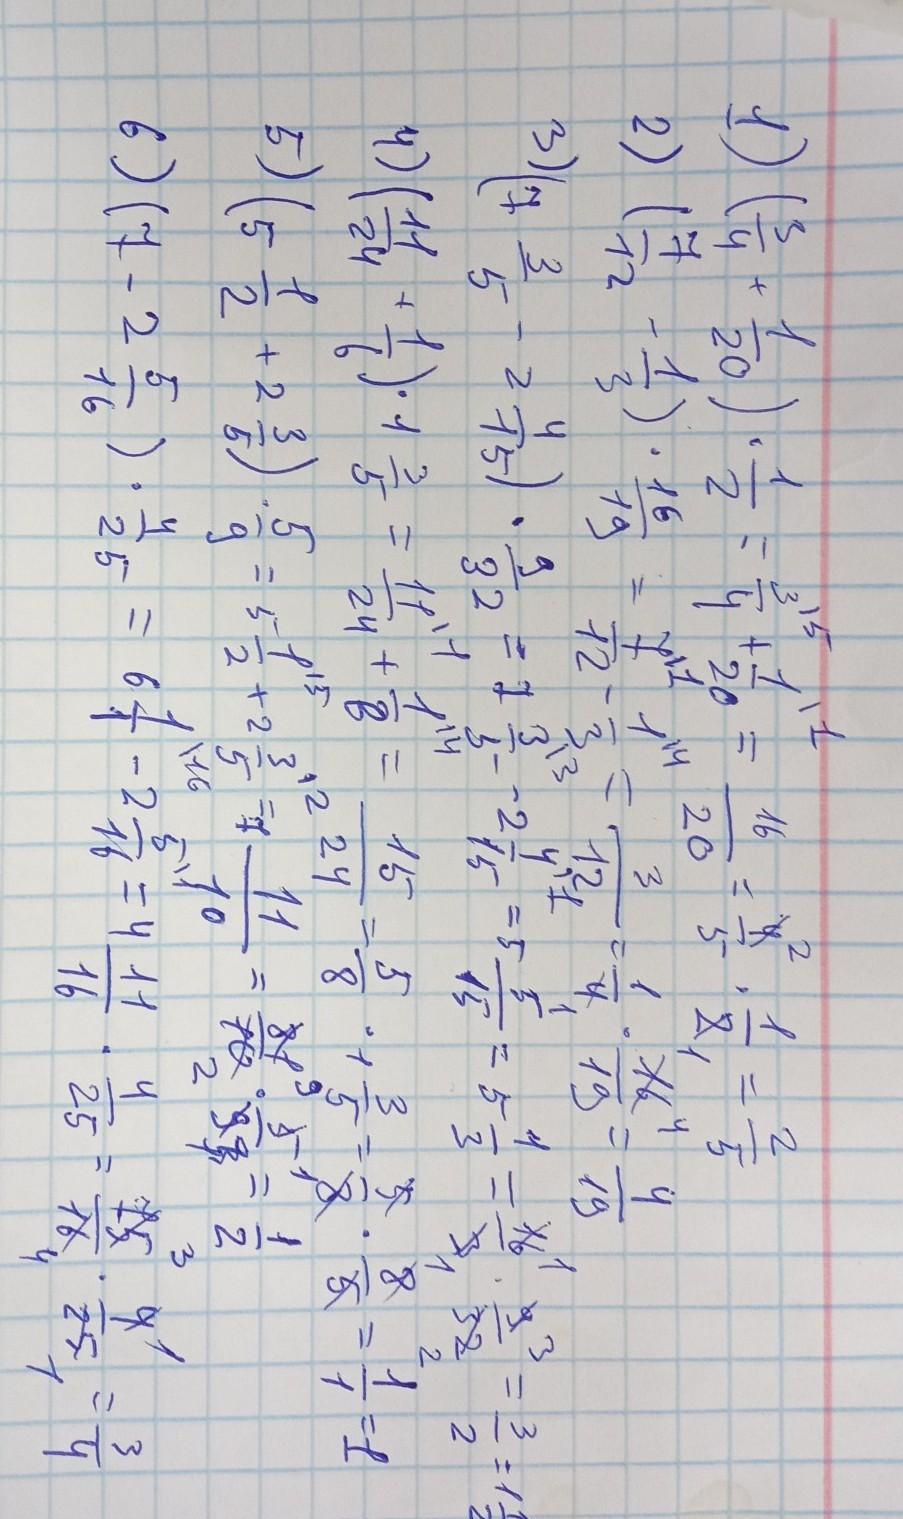 1) (3/4 + 1/20) · 1/2 = 3\5/4 + 1\1/20 = 16/20 = 4 2/5 · 1/2 1 = 2/5
2) (7/12 - 1/3) · 16/19 = 7\1/12 - 1\4/3 = 3/12 = 1/4 · 16 4/19 = 4/19
3) (7 3/5 - 2 4/15) · 9/32 = 7 3\3/5 - 2 4\1/15 = 5 5 1/15 = 5 1/3 = 16 1/3 1 · 9 3/32 2 = 3/2 = 1 1/2
4) (11/24 + 1/6) · 1 3/5 = 11\1/24 + 1\4/6 = 15/24 = 5/8 · 1 3/5 = 5/8 · 8/5 = 1/1 = 1
5) (5 1/2 + 2 3/5) · 5/9 = 5 1\5/2 + 2 3\2/5 = 7 11/10 = 81 9/10 2 · 5 1/9 = 1/2
6) (7 - 2 5/16) · 4/25 = 6 1\16/1 - 2 5\1/16 = 4 11/16 · 4/25 = 75 3/16 4 · 4 1/25 1 = 3/4